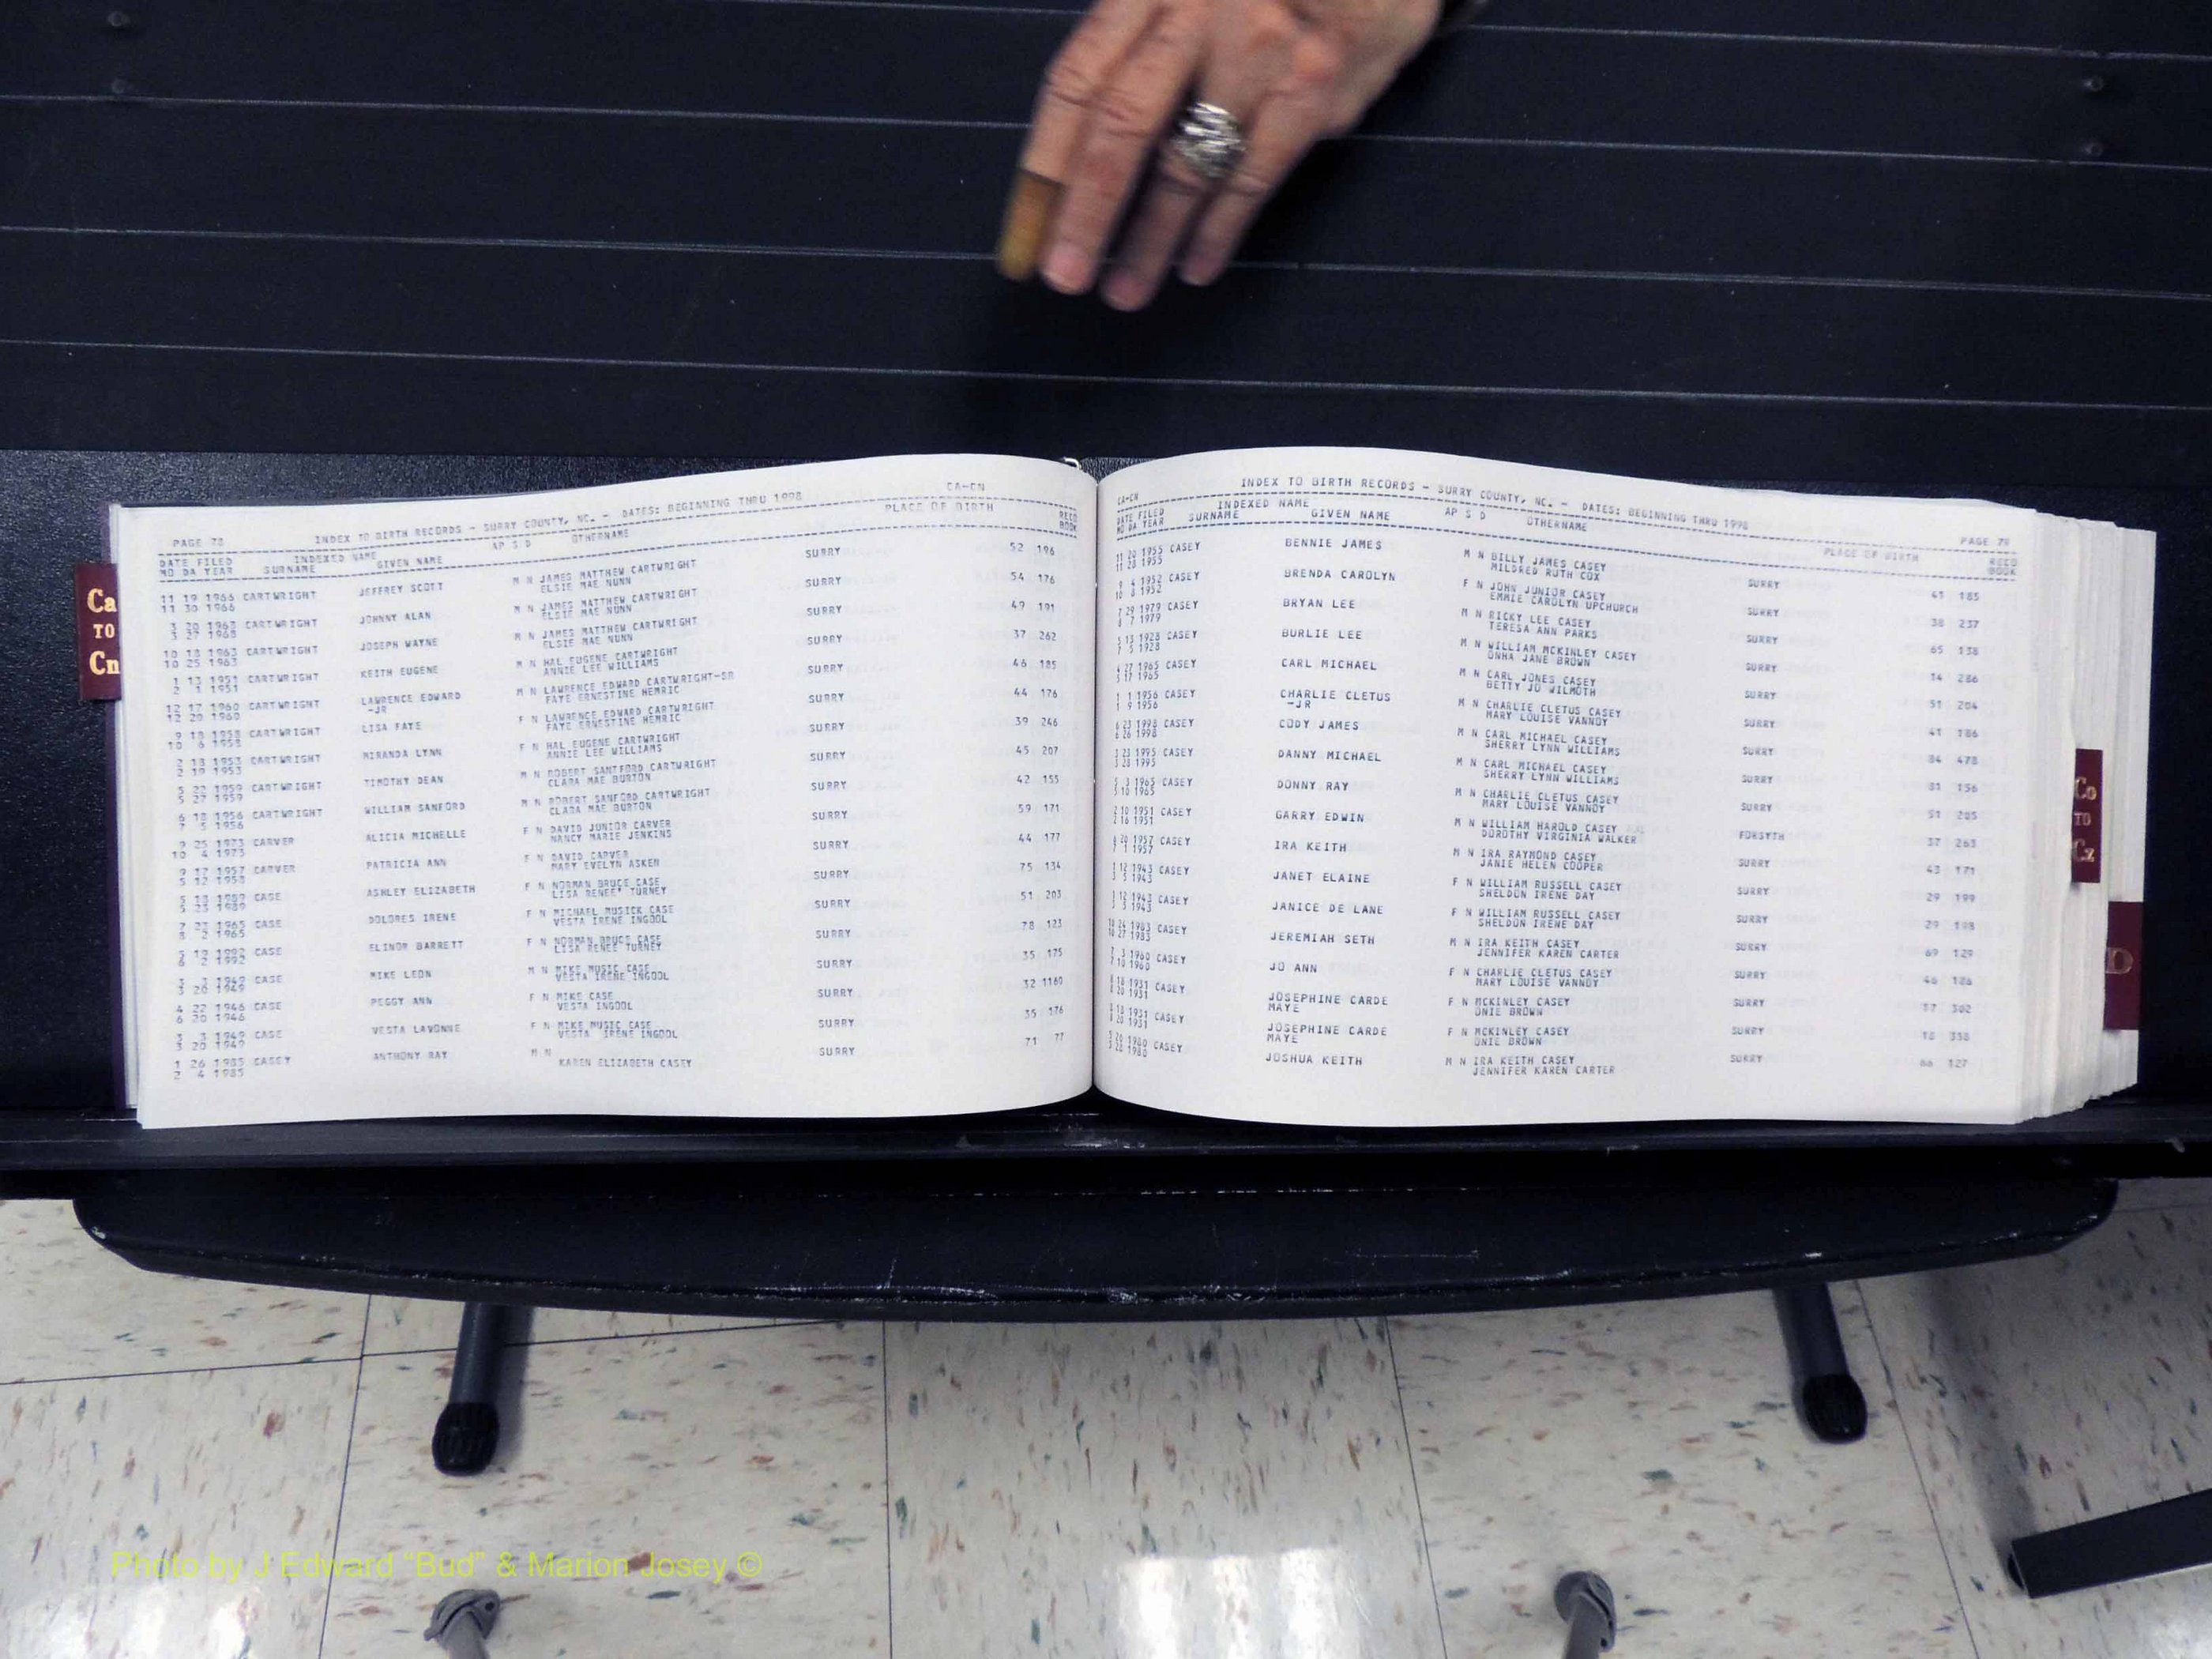 Ca
TO
Cn
PAGE 78 INDEX TO BIRTH RECORDS - SURRY COUNTY, NC. - DATES: BEGINNING THRU 1998 CA-CN
DATE FILED INDEXED NAME AP S D OTHERNAME PLACE OF BIRTH RECD
MO DA YEAR SURNAME GIVEN NAME BOOK
11 19 1966 CARTWRIGHT JEFFREY SCOTT M N JAMES MATTHEW CARTWRIGHT SURRY 52 196
11 30 1966 ELSIE MAE NUNN
3 20 1968 CARTWRIGHT JOHNNY ALAN M N JAMES MATTHEW CARTWRIGHT SURRY 54 176
3 27 1968 ELSIE MAE NUNN
10 18 1963 CARTWRIGHT JOSEPH WAYNE M N JAMES MATTHEW CARTWRIGHT SURRY 49 191
10 25 1963 ELSIE MAE NUNN
1 13 1951 CARTWRIGHT KEITH EUGENE M N HAL EUGENE CARTWRIGHT SURRY 37 262
2 1 1951 ANNIE LEE WILLIAMS
12 17 1960 CARTWRIGHT LAWRENCE EDWARD M N LAWRENCE EDWARD CARTWRIGHT-SR SURRY 46 185
12 20 1960 -JR FAYE ERNESTINE HEMRIC
9 18 1958 CARTWRIGHT LISA FAYE F N LAWRENCE EDWARD CARTWRIGHT SURRY 44 176
10 6 1958 FAYE ERNESTINE HEMRIC
2 18 1953 CARTWRIGHT MIRANDA LYNN F N HAL EUGENE CARTWRIGHT SURRY 39 246
2 19 1953 ANNIE LEE WILLIAMS
5 22 1959 CARTWRIGHT TIMOTHY DEAN M N ROBERT SANTFORD CARTWRIGHT SURRY 45 207
5 27 1959 CLARA MAE BURTON
6 18 1956 CARTWRIGHT WILLIAM SANFORD M N ROBERT SANFORD CARTWRIGHT SURRY 42 155
7 5 1956 CLARA MAE BURTON
9 25 1973 CARVER ALICIA MICHELLE F N DAVID JUNIOR CARVER SURRY 59 171
10 4 1973 NANCY MARIE JENKINS
9 17 1957 CARVER PATRICIA ANN F N DAVID CARVER SURRY 44 177
5 12 1958 MARY EVELYN ASKEN
5 18 1989 CASE ASHLEY ELIZABETH F N NORMAN BRUCE CASE SURRY 75 134
5 23 1989 LISA RENEE' TURNEY
7 23 1965 CASE DOLORES IRENE F N MICHAEL MUSICK CASE SURRY 51 203
8 2 1965 VESTA IRENE INGOOL
5 19 1992 CASE ELINOR BARRETT F N NORMAN BRUCE CASE SURRY 78 123
6 2 1992 LISA RENEE TURNEY
3 3 1949 CASE MIKE LEON M N MIKE MUSIC CASE SURRY 35 175
3 20 1949 VESTA IRENE INGOOL
4 22 1946 CASE PEGGY ANN F N MIKE CASE SURRY 32 1160
6 20 1946 VESTA INGOOL
3 3 1949 CASE VESTA LAVONNE F N MIKE MUSIC CASE SURRY 35 176
3 20 1949 VESTA IRENE INGOOL
1 26 1985 CASEY ANTHONY RAY M N SURRY 71 77
2 4 1985 KAREN ELIZABETH CASEY
CA-CN INDEX TO BIRTH RECORDS - SURRY COUNTY, NC. - DATES: BEGINNING THRU 1998 PAGE 79
DATE FILED INDEXED NAME AP S D OTHERNAME PLACE OF BIRTH RECD
MO DA YEAR SURNAME GIVEN NAME BOOK
11 20 1955 CASEY BENNIE JAMES M N BILLY JAMES CASEY SURRY 41 185
11 28 1955 MILDRED RUTH COX
9 4 1952 CASEY BRENDA CAROLYN F N JOHN JUNIOR CASEY SURRY 38 237
10 8 1952 EMMIE CAROLYN UPCHURCH
7 29 1979 CASEY BRYAN LEE M N RICKY LEE CASEY SURRY 65 138
8 7 1979 TERESA ANN PARKS
5 13 1928 CASEY BURLIE LEE M N WILLIAM MCKINLEY CASEY SURRY 14 286
7 5 1928 ONHA JANE BROWN
4 27 1965 CASEY CARL MICHAEL M N CARL JONES CASEY SURRY 51 204
5 17 1965 BETTY JO WILMOTH
1 1 1956 CASEY CHARLIE CLETUS M N CHARLIE CLETUS CASEY SURRY 41 186
1 9 1956 -JR MARY LOUISE VANNOY
6 23 1998 CASEY CODY JAMES M N CARL MICHAEL CASEY SURRY 84 478
6 26 1998 SHERRY LYNN WILLIAMS
3 23 1995 CASEY DANNY MICHAEL M N CARL MICHAEL CASEY SURRY 81 156
3 28 1995 SHERRY LYNN WILLIAMS
5 3 1965 CASEY DONNY RAY M N CHARLIE CLETUS CASEY SURRY 51 205
5 10 1965 MARY LOUISE VANNOY
2 10 1951 CASEY GARRY EDWIN M N WILLIAM HAROLD CASEY FORSYTH 37 263
2 16 1951 DOROTHY VIRGINIA WALKER
6 20 1957 CASEY IRA KEITH M N IRA RAYMOND CASEY SURRY 43 171
7 1 1957 JANIE HELEN COOPER
1 12 1943 CASEY JANET ELAINE F N WILLIAM RUSSELL CASEY SURRY 29 199
3 5 1943 SHELDON IRENE DAY
1 12 1943 CASEY JANICE DE LANE F N WILLIAM RUSSELL CASEY SURRY 29 198
3 5 1943 SHELDON IRENE DAY
10 24 1983 CASEY JEREMIAH SETH M N IRA KEITH CASEY SURRY 69 129
10 27 1983 JENNIFER KAREN CARTER
7 3 1960 CASEY JO ANN F N CHARLIE CLETUS CASEY SURRY 46 186
7 10 1960 MARY LOUISE VANNOY
8 18 1931 CASEY JOSEPHINE CARDE F N MCKINLEY CASEY SURRY 17 302
8 20 1931 MAYE ONIE BROWN
8 18 1931 CASEY JOSEPHINE CARDE F N MCKINLEY CASEY SURRY 18 358
8 20 1931 MAYE ONIE BROWN
1980 CASEY JOSHUA KEITH M N IRA KEITH CASEY SURRY 66 127
1980 JENNIFER KAREN CARTER
Co
TO
Cz
D
Photo by J Edward “Bud” & Marion Josey ©